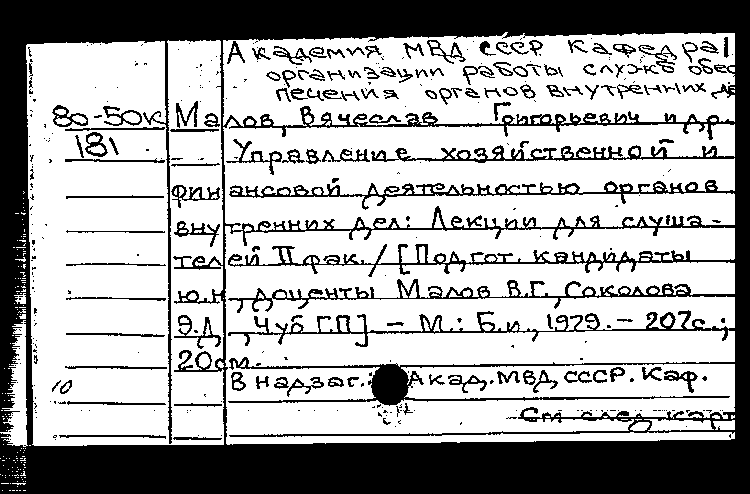 Академия МВД СССР Кафедра
организации работы служб обес
печения органов внутренних де
80-50к Малов, Вячеслав Григорьевич и др.
181 Управление хозяйственной и
финансовой деятельностью органов
внутренних дел: Лекции для слуша-
телей II фак. / [Подгот. кандидаты
ю.н., доценты Малов В.Г., Соколова
Э.Д., Чуб Г.П] . – М.: Б.и., 1979. – 207с.;
20см.
10 В надзаг.: Акад. МВД СССР. Каф.
См след карт